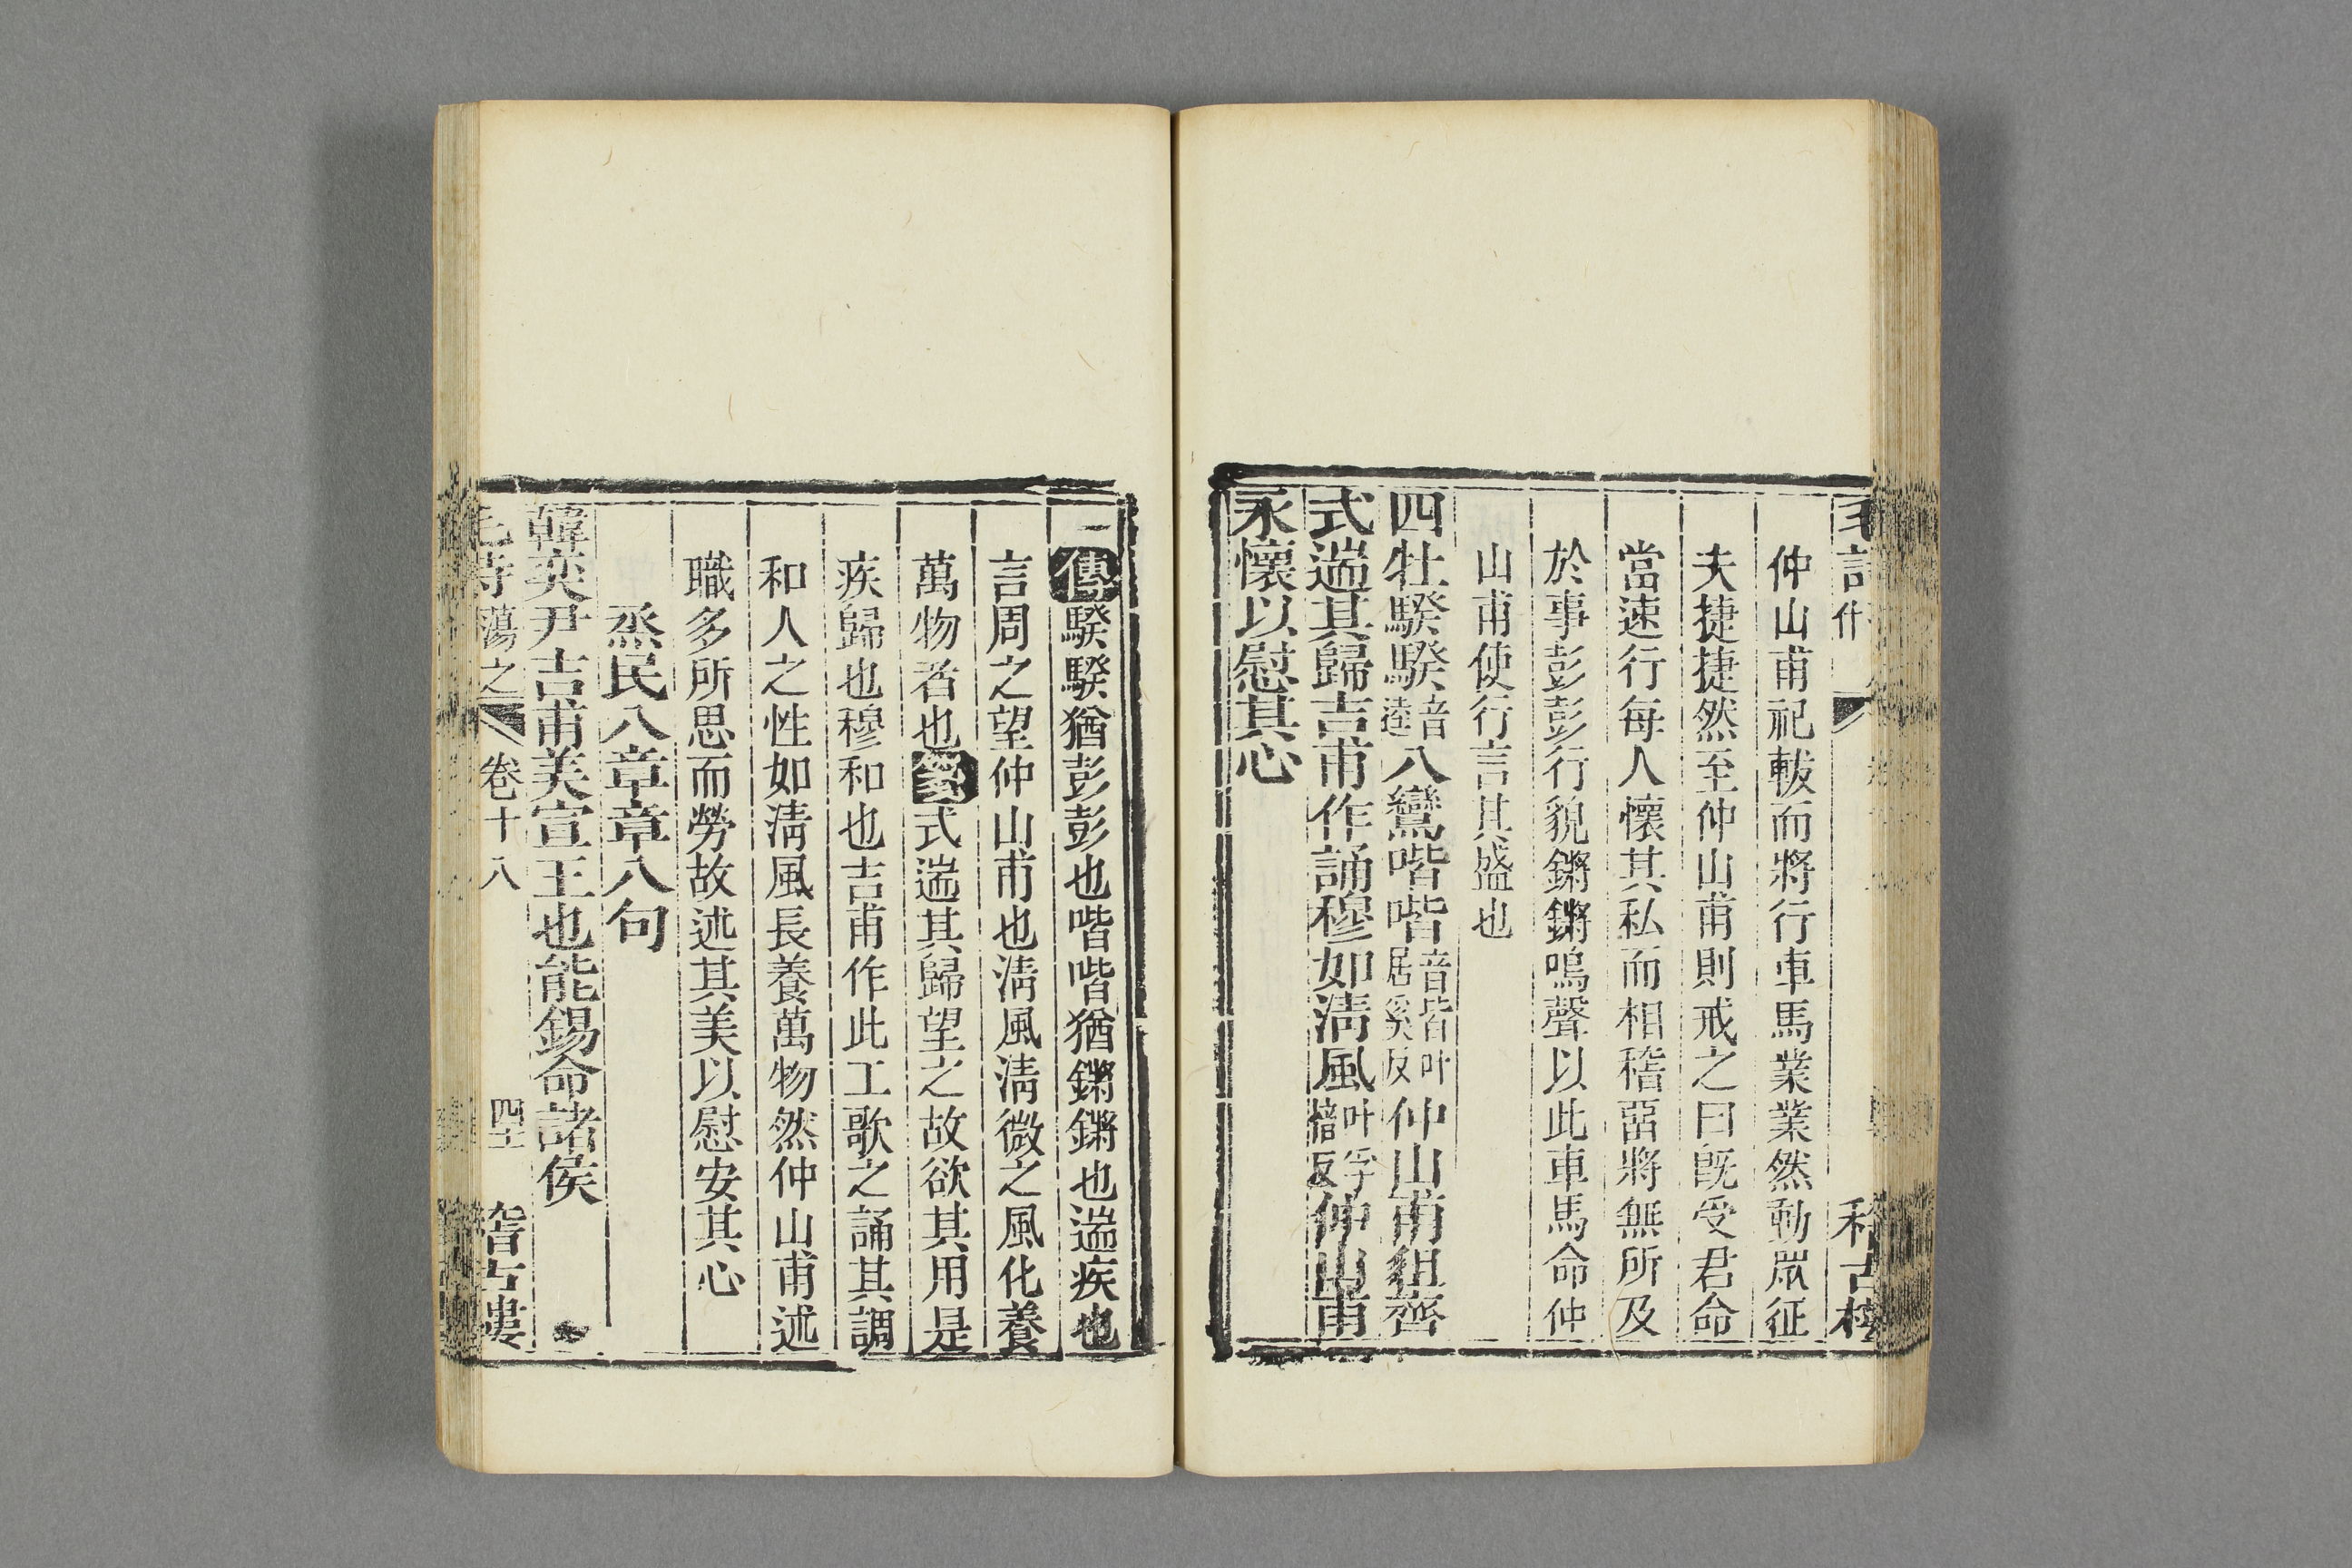 仲山甫祀軷而將行車馬業業然動眾征
夫捷捷然至仲山甫則戒之曰旣受君命
當速行每人懷其私而相稽畱將無所及
於事彭彭行貌鏘鏘鳴聲以此車馬命仲
山甫使行言其盛也
四牡騤騤音逵八鸞喈喈音皆叶居奚反仲山甫徂齊
式遄其歸吉甫作誦穆如淸風叶孚愔反仲山甫
永懷以慰其心
傳騤騤猶彭彭也喈喈猶鏘鏘也遄疾也
言周之望仲山甫也淸風淸微之風化養
萬物者也箋式遄其歸望之故欲其用是
疾歸也穆和也吉甫作此工歌之誦其調
和人之性如淸風長養萬物然仲山甫述
職多所思而勞故述其美以慰安其心
烝民八章章八句
韓奕尹吉甫美宣王也能錫命諸侯
毛詩蕩之 卷十八 稽古樓